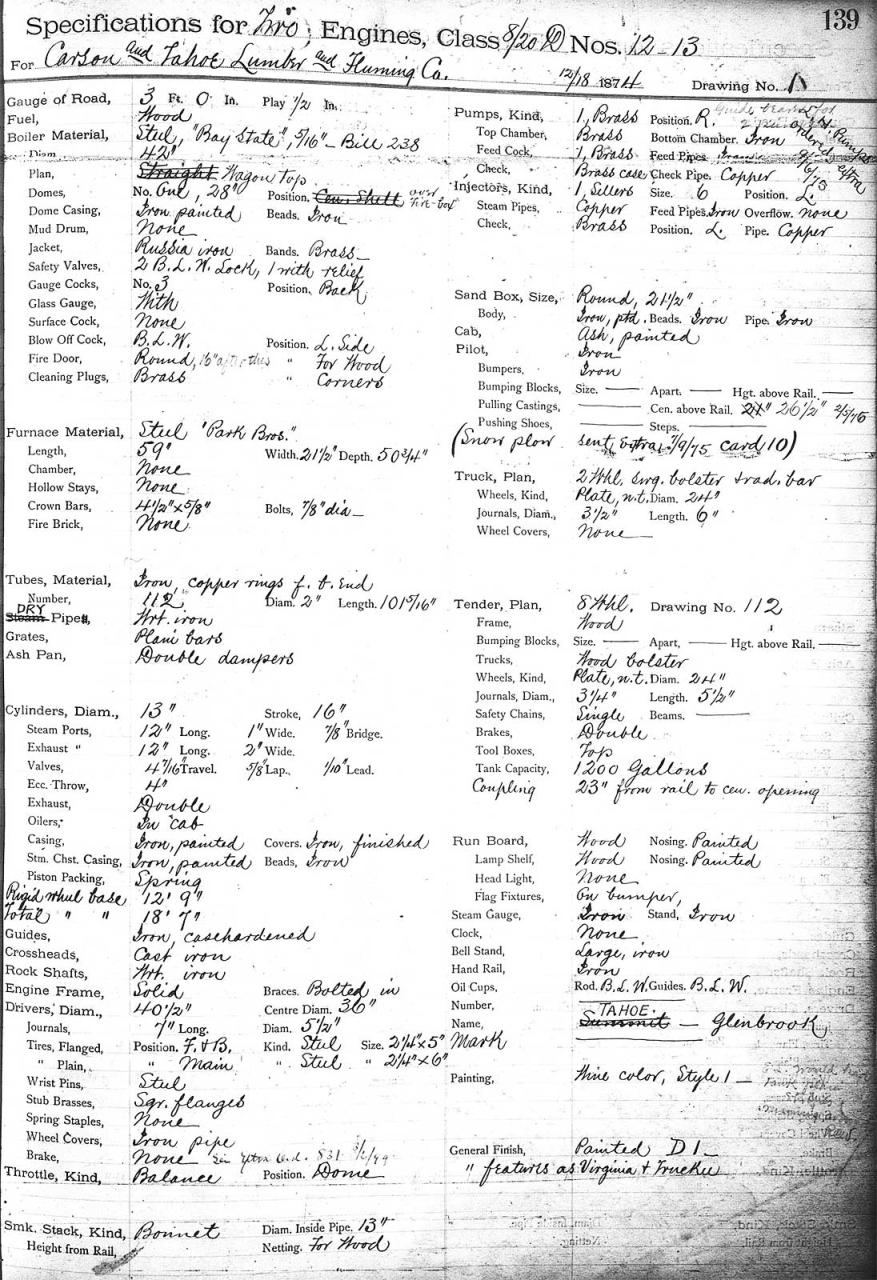 139
Specifications for Two Engines, Class 8/20 D Nos. 12 - 13
For Carson and Tahoe Lumber and Fluming Co. 12/18 1874 Drawing No. 1
Gauge of Road, 3 Ft. 0 In. Play 1/2 In.
Fuel, Wood
Boiler Material, Steel, "Bay State", 5/16" - Bill 238
Diam. 42"
Plan, Straight Wagon top
Domes, No. One, 28" Position, Cen. Shell over fire-box
Dome Casing, Iron painted Beads. Iron
Mud Drum, None
Jacket, Russia iron Bands. Brass
Safety Valves, 2 B.L.W. Lock, 1 with relief
Gauge Cocks, No. 3 Position, Back
Glass Gauge, With
Surface Cock, None
Blow Off Cock, B.L.W. Position. L. Side
Fire Door, Round, 16" after this " For Wood
Cleaning Plugs, Brass " Corners
Furnace Material, Steel "Park Bros."
Length, 59" Width. 21 1/2" Depth. 50 3/4"
Chamber, None
Hollow Stays, None
Crown Bars, 4 1/2" x 5/8" Bolts, 7/8" dia
Fire Brick, None
Tubes, Material, Iron, copper rings f. b. End
Number, 112 Diam. 2" Length. 101 5/16"
DRY
Steam Pipes, Wrt. iron
Grates, Plain bars
Ash Pan, Double dampers
Cylinders, Diam., 13" Stroke, 16"
Steam Ports, 12" Long. 1" Wide. 7/8" Bridge.
Exhaust " 12" Long. 2" Wide.
Valves, 4 7/16" Travel. 5/8" Lap. 1/10" Lead.
Ecc. Throw, 4"
Exhaust, Double
Oilers, In cab
Casing, Iron, painted Covers. Iron, finished
Stm. Chst. Casing, Iron, painted Beads, Iron
Piston Packing, Spring
Rigid wheel base 12' 9"
Total " " 18' 7"
Guides, Iron, casehardened
Crossheads, Cast iron
Rock Shafts, Wrt. iron
Engine Frame, Solid Braces. Bolted in
Drivers, Diam., 40 1/2" Centre Diam. 36"
Journals, 7" Long. Diam. 5 1/2"
Tires, Flanged, Position. F. & B. Kind. Steel Size. 2 1/4" x 5"
" Plain, " Main " Steel " 2 1/4" x 6"
Wrist Pins, Steel
Stub Brasses, Sqr. flanges
Spring Staples, None
Wheel Covers, Iron pipe
Brake, None
Throttle, Kind, Balance Position. Dome
Smk. Stack, Kind, Bonnet Diam. Inside Pipe. 13"
Height from Rail, Netting. For Wood
Pumps, Kind, 1, Brass Position. R.
Top Chamber, Brass Bottom Chamber. Iron
Feed Cock, 1, Brass Feed Pipes
Check, Brass case Check Pipe. Copper
Injectors, Kind, 1, Sellers Size. 6 Position. L.
Steam Pipes, Copper Feed Pipes. Iron Overflow. none
Check, Brass Position. L. Pipe. Copper
Sand Box, Size, Round, 21 1/2"
Body, Iron, ptd. Beads. Iron Pipe. Iron
Cab, Ash, painted
Pilot, Iron
Bumpers, Iron
Bumping Blocks, Size. Apart, Hgt. above Rail.
Pulling Castings, Cen. above Rail. 21" 26 1/2" 2/5/75
Pushing Shoes, Steps.
(Snow plow sent, Extra 7/9/75 card 10)
Truck, Plan, 2 Whl. swg. bolster & rad. bar
Wheels, Kind, Plate, n.t. Diam. 24"
Journals, Diam., 3 1/2" Length. 6"
Wheel Covers, None
Tender, Plan, 8 Whl. Drawing No. 112
Frame, Wood
Bumping Blocks, Size. Apart, Hgt. above Rail.
Trucks, Wood bolster
Wheels, Kind, Plate, n.t. Diam. 24"
Journals, Diam., 3 1/4" Length. 5 1/2"
Safety Chains, Single Beams.
Brakes, Double
Tool Boxes, Top
Tank Capacity, 1200 Gallons
Coupling 23" from rail to cen. opening
Run Board, Wood Nosing. Painted
Lamp Shelf, Wood Nosing. Painted
Head Light, None
Flag Fixtures, On bumper,
Steam Gauge, Iron Stand, Iron
Clock, None
Bell Stand, Large, iron
Hand Rail, Iron
Oil Cups, Rod. B.L.W. Guides. B.L.W.
Number,
TAHOE.
Name, Summit - Glenbrook
Mark
Painting, Wine color, Style 1
General Finish, Painted D1
" features as Virginia & Truckee